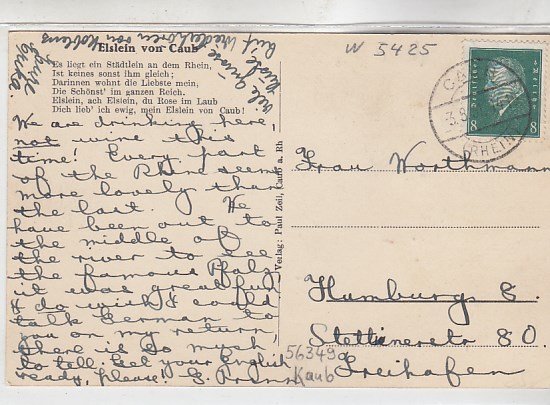 Elslein von Caub
Es liegt ein Städtlein an dem Rhein,
Ist keines sonst ihm gleich;
Darinnen wohnt die Liebste mein,
Die Schönst' im ganzen Reich.
Elslein, ach Elslein, du Rose im Laub
Dich lieb' ich ewig, mein Elslein von Caub!
We are drinking here,
not wine this
time! Every part
of the Rhine seems
more lovely than
the last. We
have been out to
the middle of
the river to see
the famous Pfalz
it was great fun!
I do wish I could
talk German to
you on my return,
there is so much
to tell. Get your English
ready, please!
viele Grüsse
Auf Wiederhören von Koblenz
Verlag: Paul Zeil, Caub a. Rh
W 5425
Deutsches Reich
8 8
(RHEIN)
Frau Worthmann
Hamburg 8.
Stettinerstr 80.
Freihafen
56349
Kaub